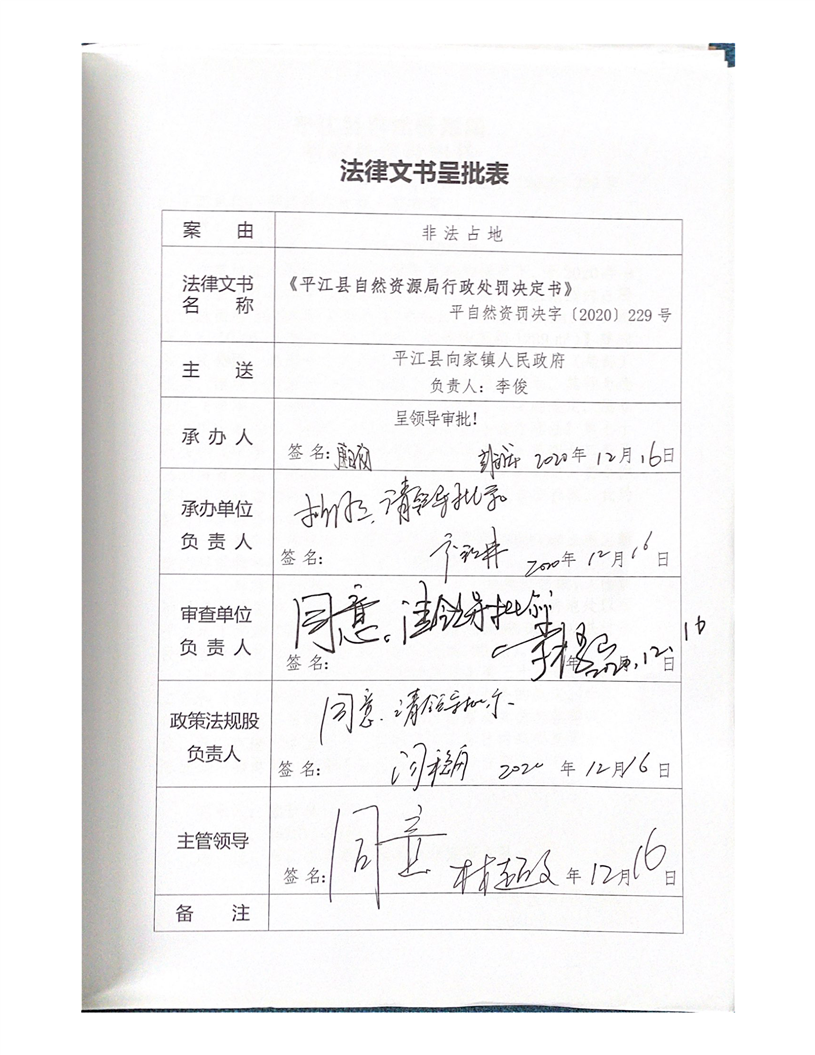 法律文书呈批表
案 由
非法占地
法律文书
名 称
《平江县自然资源局行政处罚决定书》
平自然资罚决字〔2020〕229 号
主 送
平江县向家镇人民政府
负责人：李俊
承 办 人
呈领导审批！
签 名： 2020年 12月 16日
承办单位
负 责 人
请领导批示
签 名： 2020年 12月 16日
审查单位
负 责 人
同意。请领导批示
签 名： 年 2020.12.16 日
政策法规股
负责人
同意.请领导批示.
签 名： 2020 年 12月16日
主管领导
同意
签 名： 年 12月16日
备 注